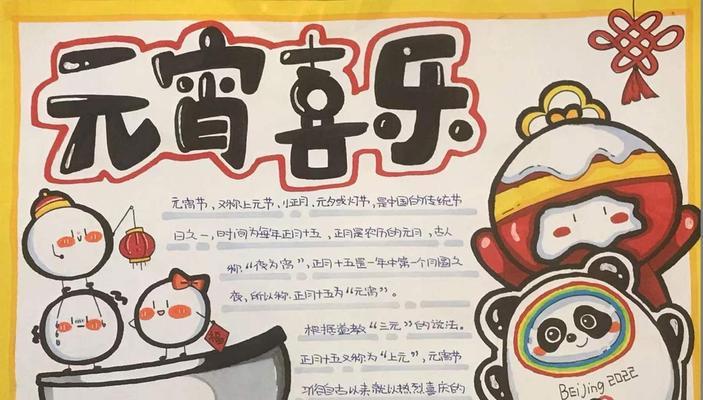 元宵喜乐
元宵节，又称上元节、小正月、元夕或灯节，是中国的传统节
日之一，时间为每年正月十五，正月是农历的元月，古人
称“夜为宵”，正月十五是一年中第一个月圆之
夜，所以称正月十五为“元宵”。
根据道教“三元”的说法，
正月十五又称为“上元”，元宵节
习俗自古以来就以热烈喜庆的
福
BeiJing 2022